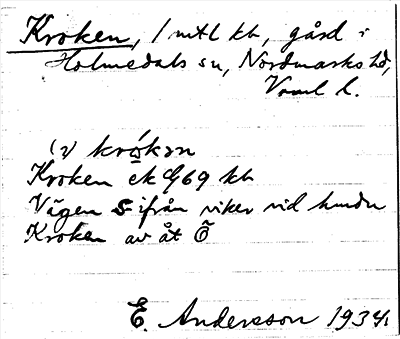 Kroken, 1 mtl kr, gård i
Holmedals sn, Nordmarks hd,
Vrml l.
(2) krókən
Kroken ek G69 kr
Vägen S ifrån viker vid
Kroken av åt Ö
E. Andersson 1934.